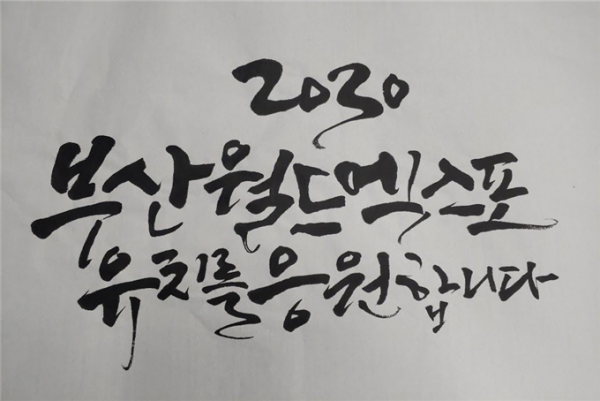 2030
부산월드엑스포
유치를응원합니다